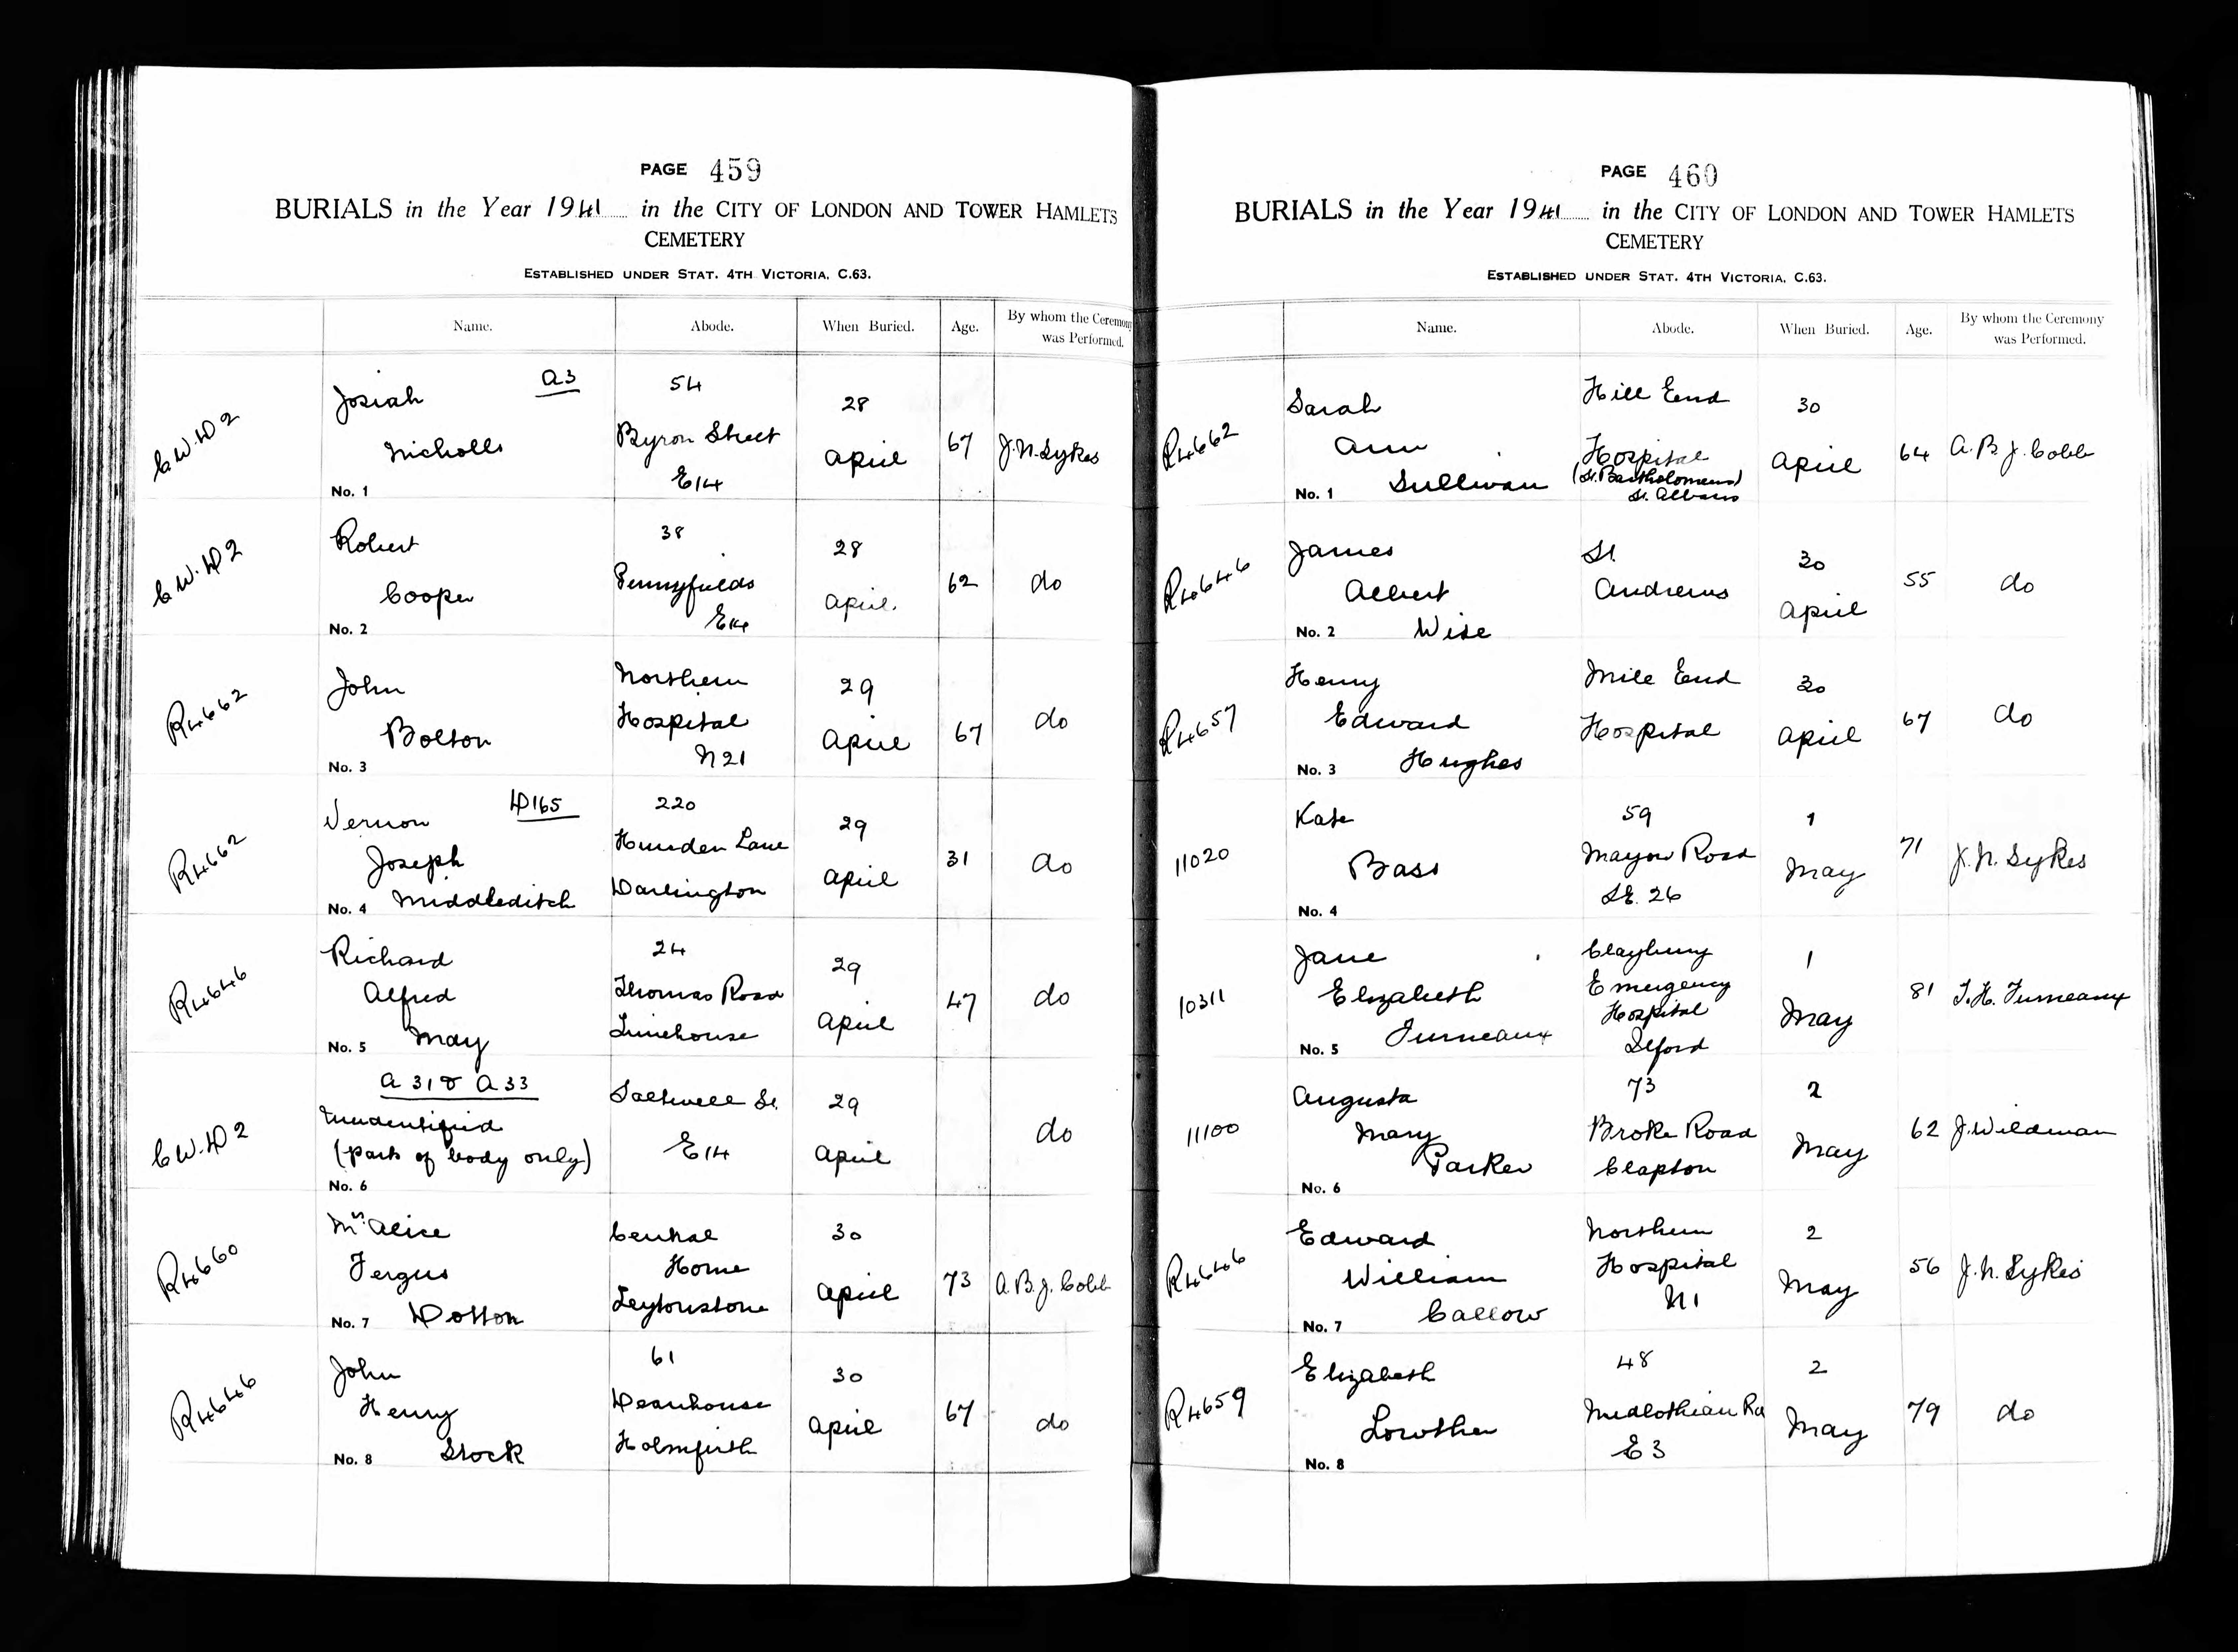 PAGE 459
BURIALS in the Year 1941 in the CITY OF LONDON AND TOWER HAMLETS
CEMETERY
ESTABLISHED UNDER STAT. 4TH VICTORIA, C.63.
Name. Abode. When Buried. Age. By whom the Ceremony was Performed.
C.W.D2
Josiah A3
Nicholls
No. 1
54
Byron Street
E14
28
April
67
J.N.Sykes
C.W.D2
Robert
Cooper
No. 2
38
Pennyfields
E14
28
April.
62
do
R4662
John
Bolton
No. 3
Northern
Hospital
N21
29
April
67
do
R4662
Vernon D165
Joseph
No. 4 Middleditch
220
Lane
Darlington
29
April
31
do
R4646
Richard
Alfred
No. 5 May
24
Thomas Road
Limehouse
29
April
47
do
C.W.D2
A 31 & A 33
Unidentified
(part of body only)
No. 6
Saltwell St.
E14
29
April
do
R4660
Mrs. Alice
Fergus
No. 7 Dotton
Central
Home
Leytonstone
30
April
73
A.B.J. Cobb
R4646
John
Henry
No. 8 Stock
61
Deanhouse
Holmfirth
30
April
67
do
PAGE 460
BURIALS in the Year 1941 in the CITY OF LONDON AND TOWER HAMLETS
CEMETERY
ESTABLISHED UNDER STAT. 4TH VICTORIA, C.63.
Name. Abode. When Buried. Age. By whom the Ceremony was Performed.
R4662
Sarah
Ann
No. 1 Sullivan
Hill End
Hospital
(St. Bartholomews)
St. Albans
30
April
64
A.B.J. Cobb
R4646
James
Albert
No. 2 Wise
St.
Andrews
30
April
55
do
R4657
Henry
Edward
No. 3 Hughes
Mile End
Hospital
30
April
67
do
11020
Kate
Bass
No. 4
59
Mayow Road
SE. 26
1
May
71
J.N. Sykes
10311
Jane
Elizabeth
No. 5 Furneaux
Claybury
Emergency
Hospital
Ilford
1
May
81
T.H. Furneaux
11100
Augusta
Mary
Parker
No. 6
73
Broke Road
Clapton
2
May
62
J.Wildman
R4646
Edward
William
No. 7 Callow
Northern
Hospital
N1
2
May
56
J.N. Sykes
R4659
Elizabeth
Lowther
No. 8
48
Midlothian Rd
E3
2
May
79
do